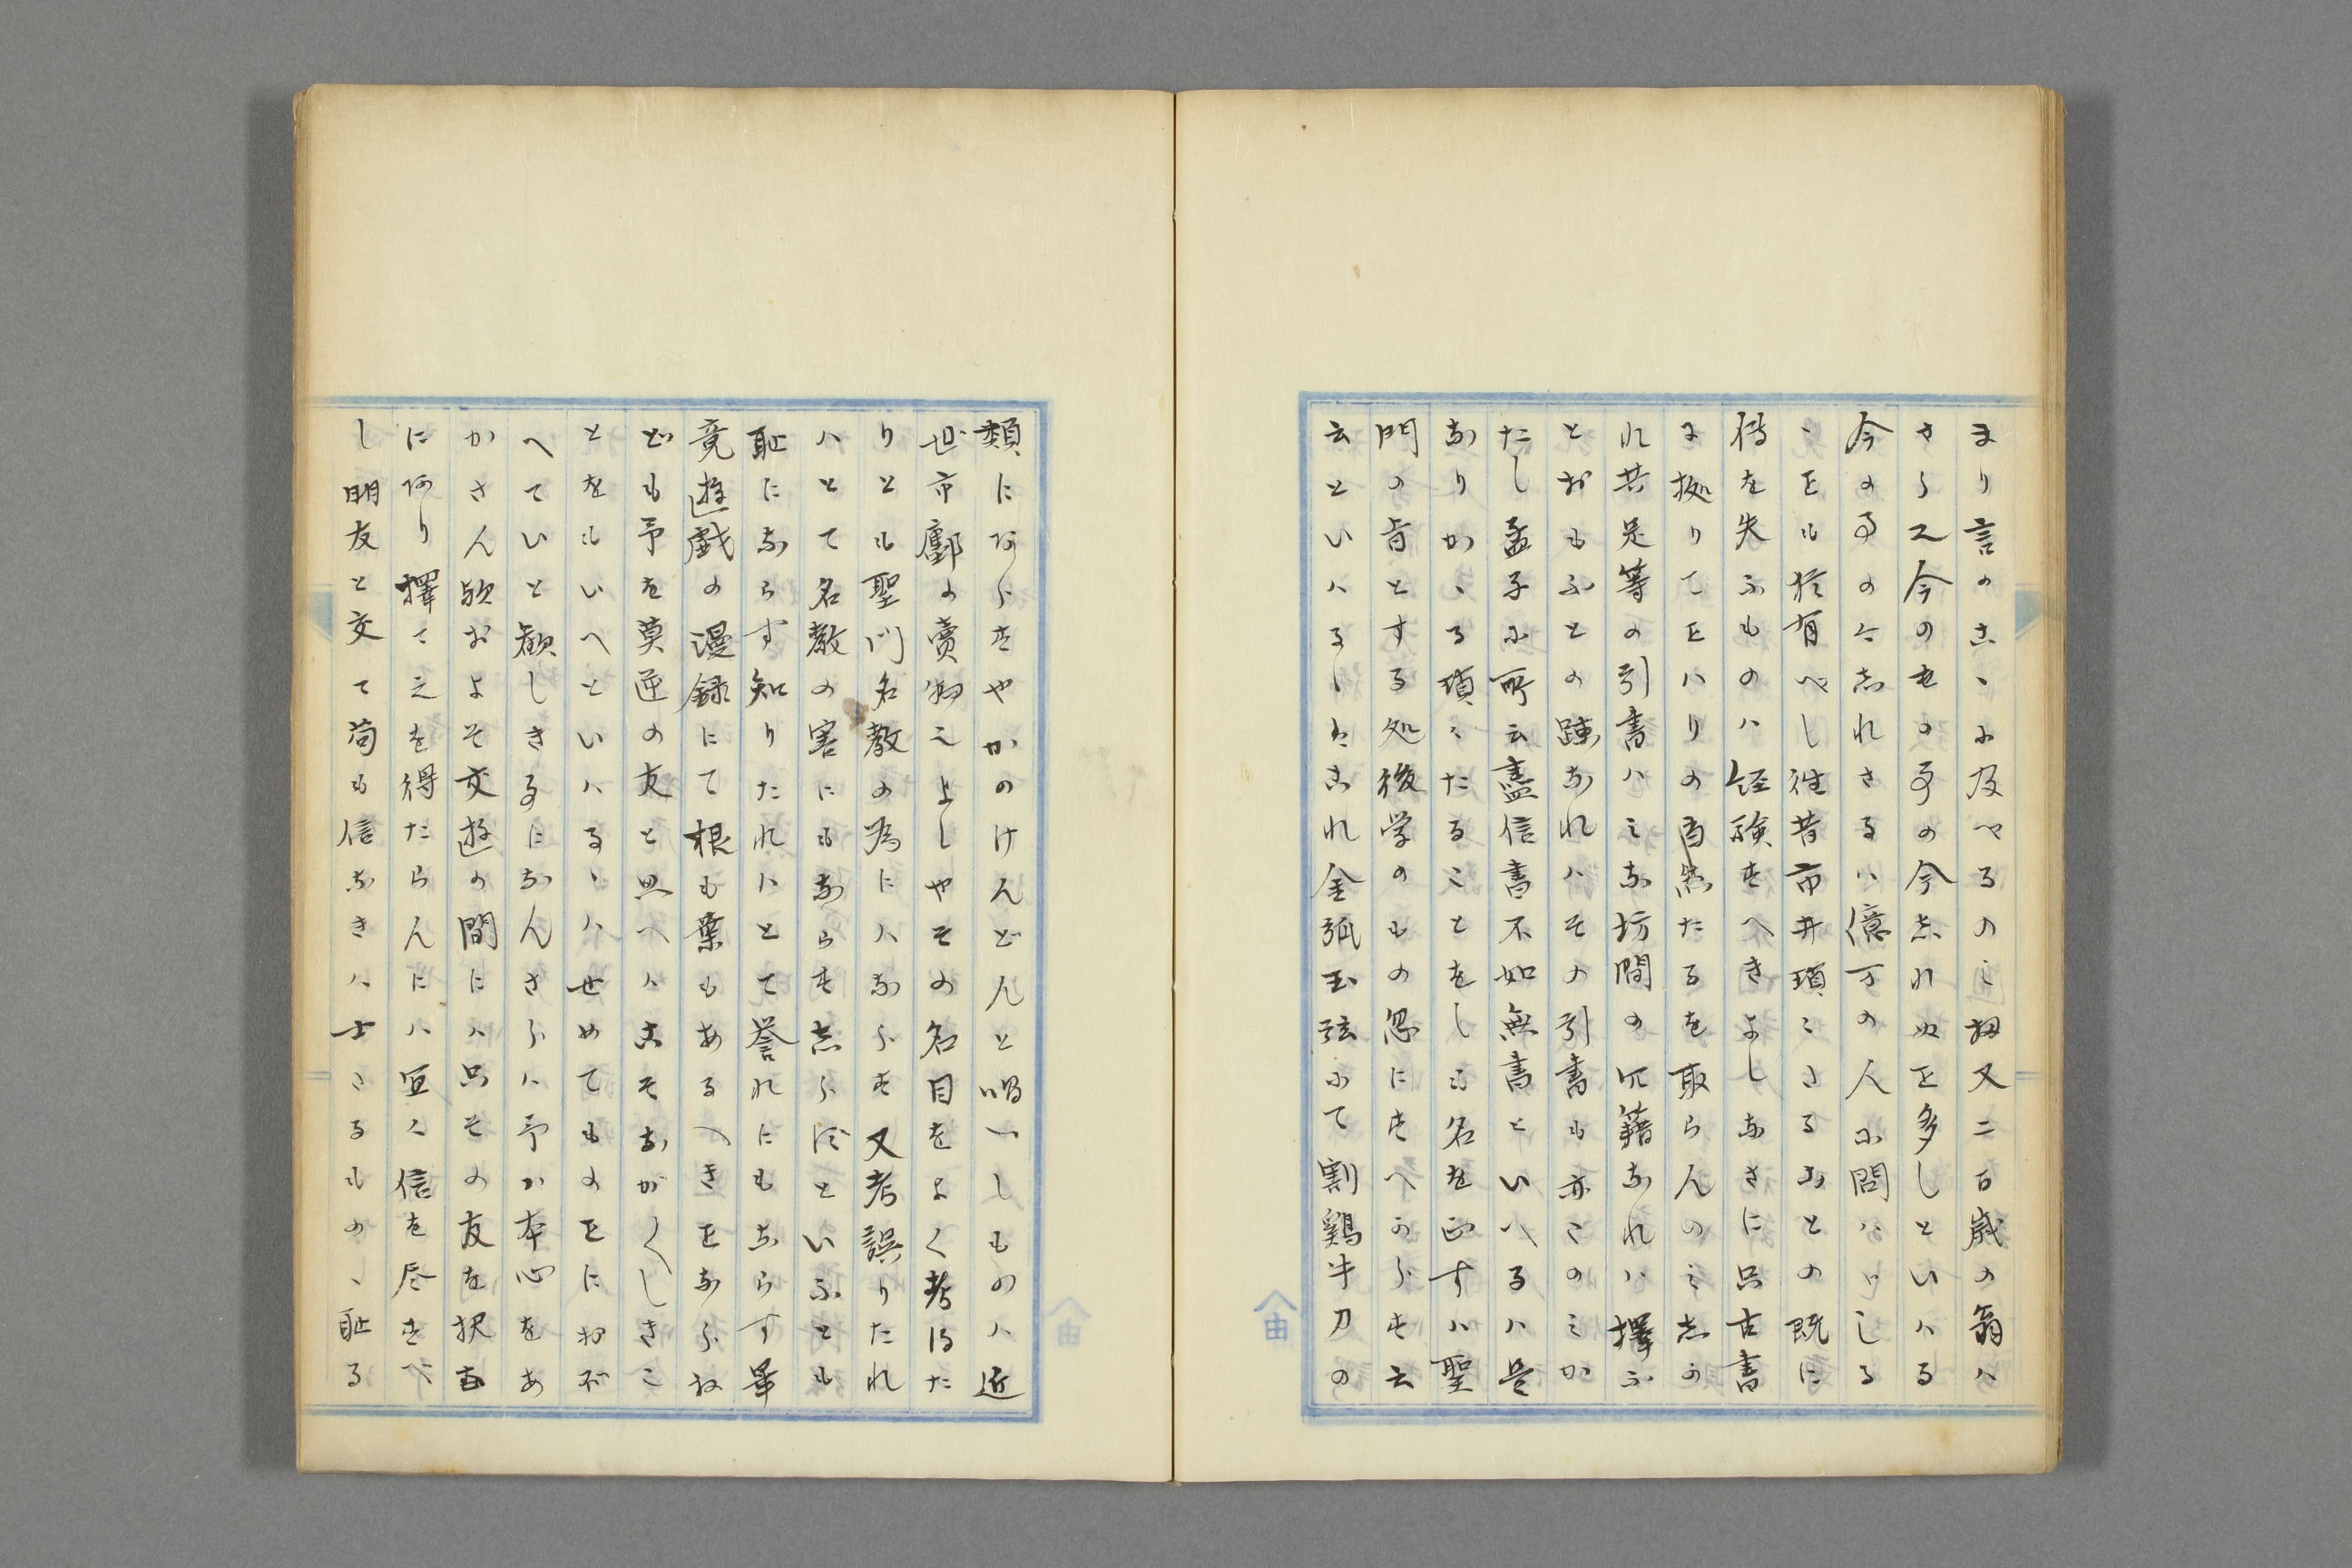 まり言のこゝに及へるのミ扨又二百歳の翁ハ
さらに今のもの事の今志れぬも多しといハる
今の事の今志れさるハ億万の人に問ハゝしる
ゝも猶有へし往昔市井瑣ミさることの既に
傳を失ふものハ経験すへきよしなきに只古書
に拠りてをハりの自然たるを取らんのミ志か
れ共是等の引書ハミな坊間の冗籍なれハ擇ふ
とおもふとの疎なれハその引書も亦このミか
たし孟子に所云盡信書不如無書といへるハ是
なりかゝる瑣ミたることをしも名を正すハ聖
門の旨とする処後学のもの忽にすへからす云
云といハるゝはこれ金弧玉弦にて割鶏牛刀の
類にあらすやかのけんどんと唱へしものハ近
世市鄽の賣物之よしやその名目をよく考得た
りとも聖門名教の為にハならす又考誤りたれ
ハとて名教の害にもならす志らずといふとも
恥にならす知りたれハとて誉れにもならす畢
竟遊戯の漫録にて根も葉もあるへきをならね
ども予を莫逆の友と思へハこそながくしきこ
とをもいへといハるゝハせめてものをにおぼ
へていと歎しき事になんさらハ予か本心をあ
かさん歟およそ交遊の間にハ只その友を択む
にあり擇て之を得たらんにハ宜く信を尽すべ
し朋友と交て苟も信なきハ士さるものゝ耻る